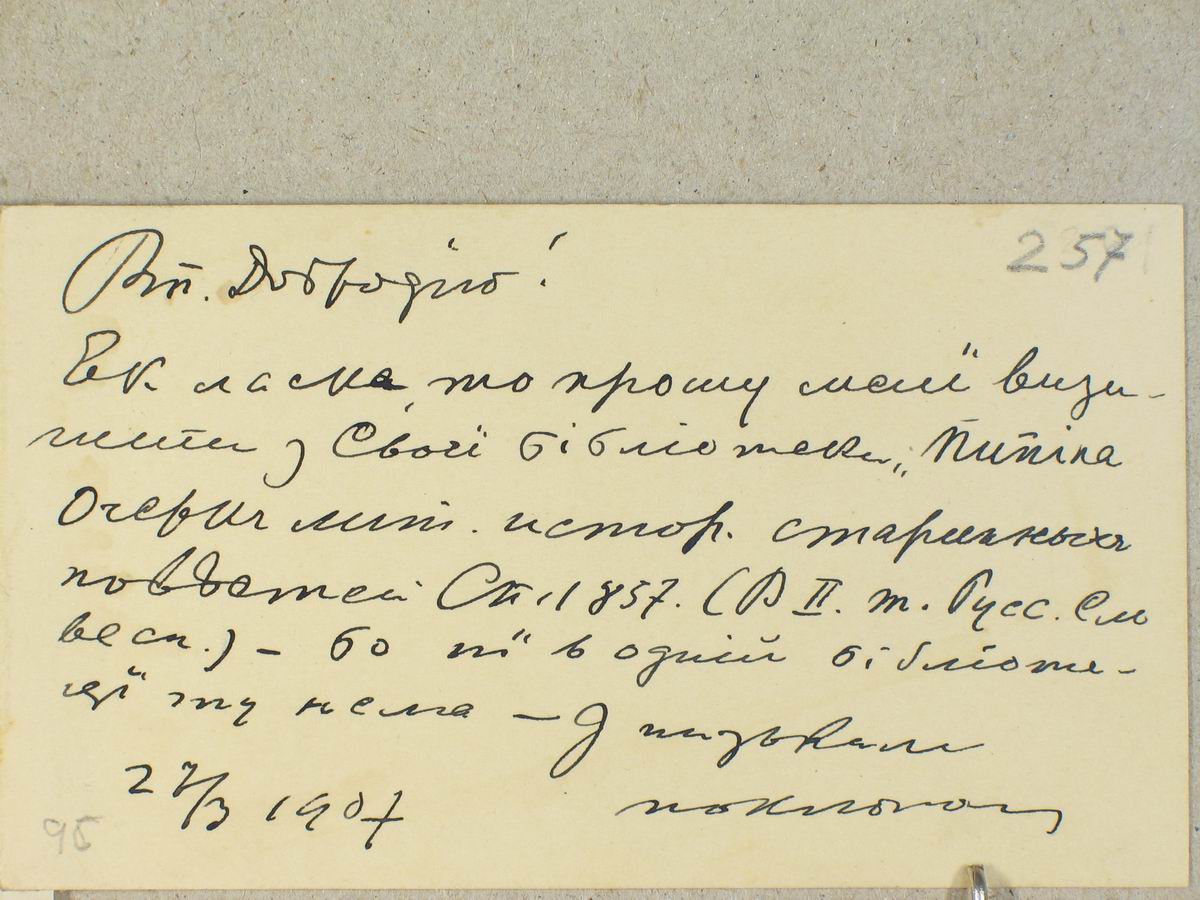 257
Вп. Добродію!
Єк ласка, то прошу мені визи-
чити з Своєї бібліотеки „Пипіна
Очеркъ лит. истор. старинныхъ
повѣстей Сп. 1857. (В II. т. Русс. Сло
весн.) – бо ні в одній бібліоте-
цї ту нема – З низьким
поклоном
27/3 1907
95